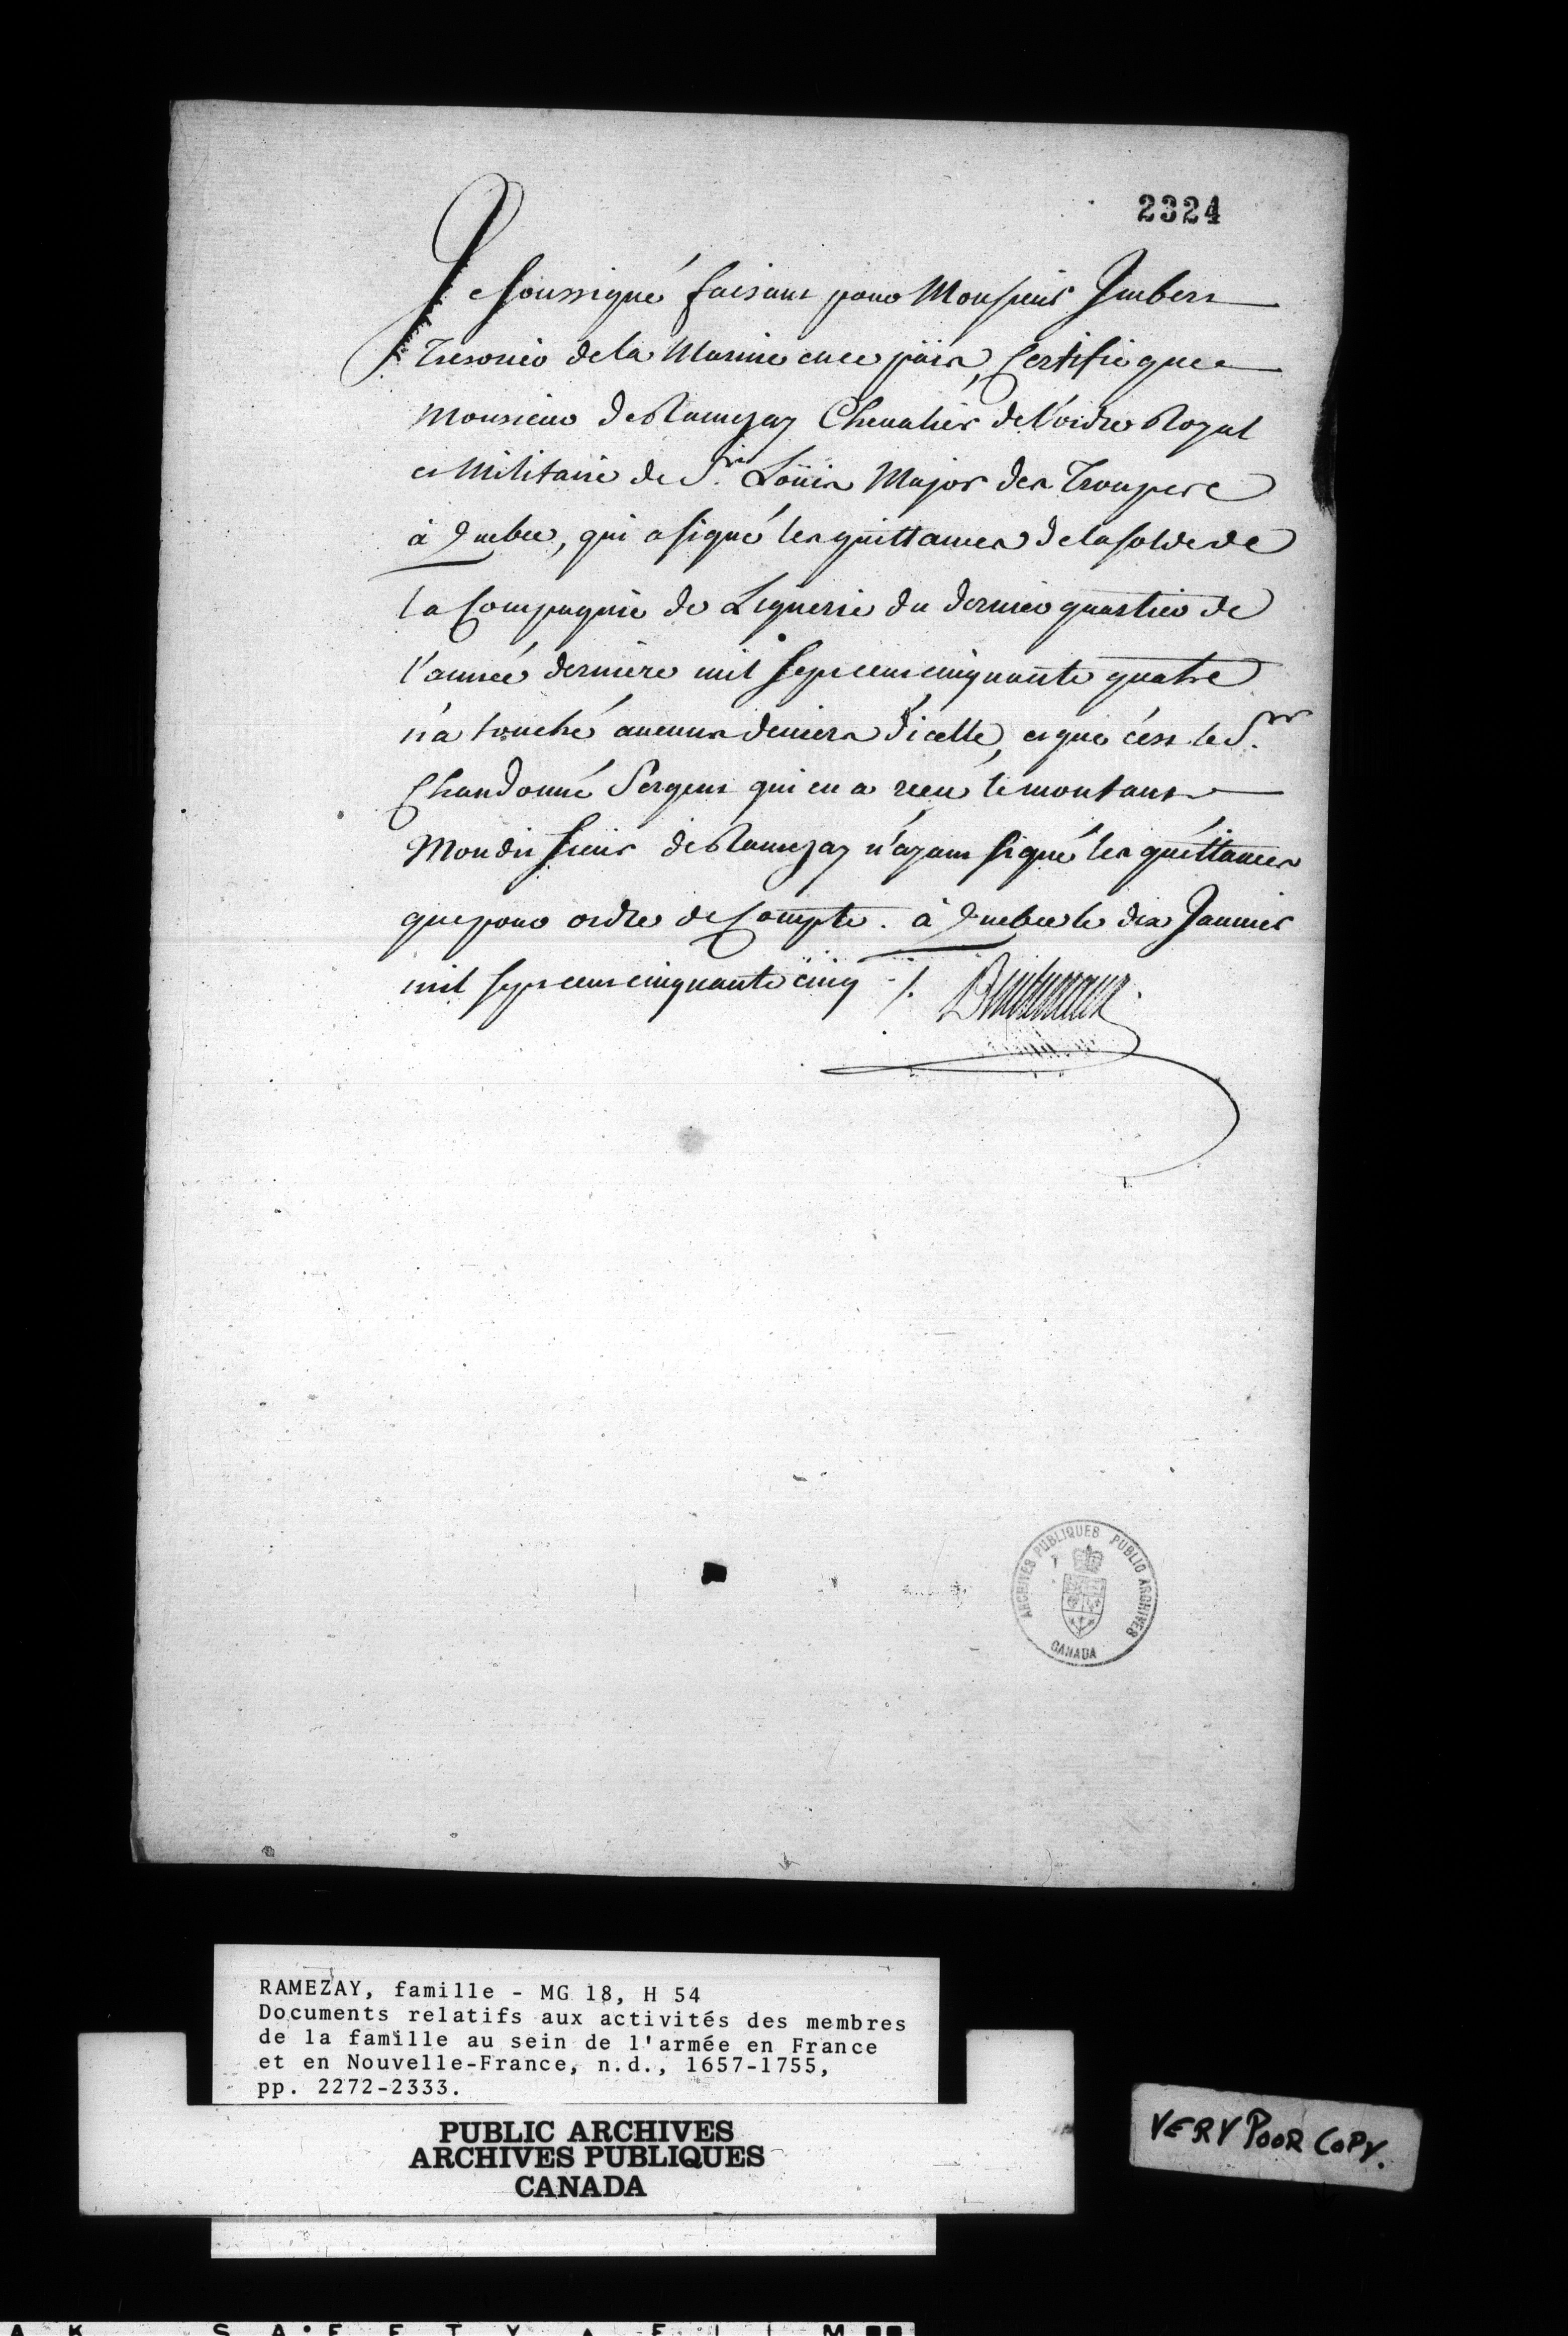 2324
Je soussigné faisant pour Monsieur Imbert
Tresorier de la Marine en ce païs, Certifie que
Monsieur de Ramezay Chevalier de l'ordre Royal
et Militaire de St. Loüis Major des Troupes
à Quebec, qui a signé les quittances de la solde de
la Compagnie de Ligneris du dernier quartier de
l'année derniere mil sept cent cinquante quatre
n'a touché aucuns deniers d'icelle, et que c'est le Sr.
Chandonné Sergent qui en a reçu le montant
Mondit sieur de Ramezay n'ayant signé les quittances
que pour ordre de Compte. à Quebec le dix Janvier
mil sept cent cinquante cinq ·/.
ARCHIVES PUBLIQUES PUBLIC ARCHIVES
CANADA
RAMEZAY, famille - MG 18, H 54
Documents relatifs aux activités des membres
de la famille au sein de l'armée en France
et en Nouvelle-France, n.d., 1657-1755,
pp. 2272-2333.
PUBLIC ARCHIVES
ARCHIVES PUBLIQUES
CANADA
VERY POOR COPY.